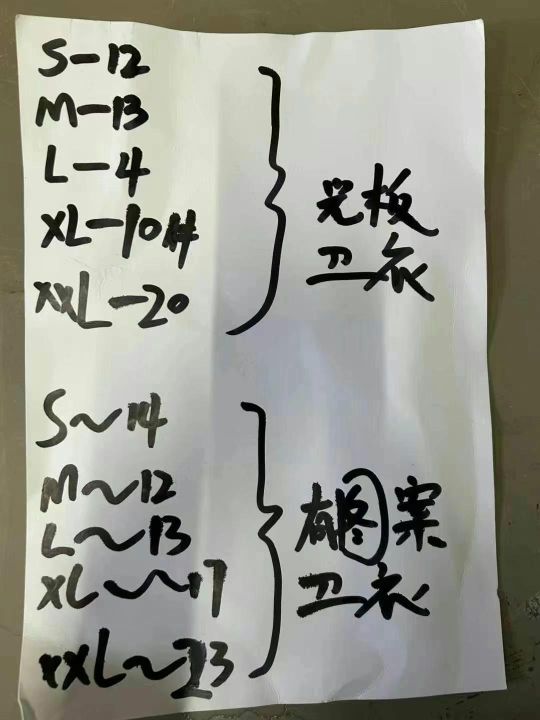 S-12
M-13
L-4
XL-10件
XXL-20
光板
卫衣
S~14
M~12
L~13
XL~17
XXL~23
有图案
卫衣